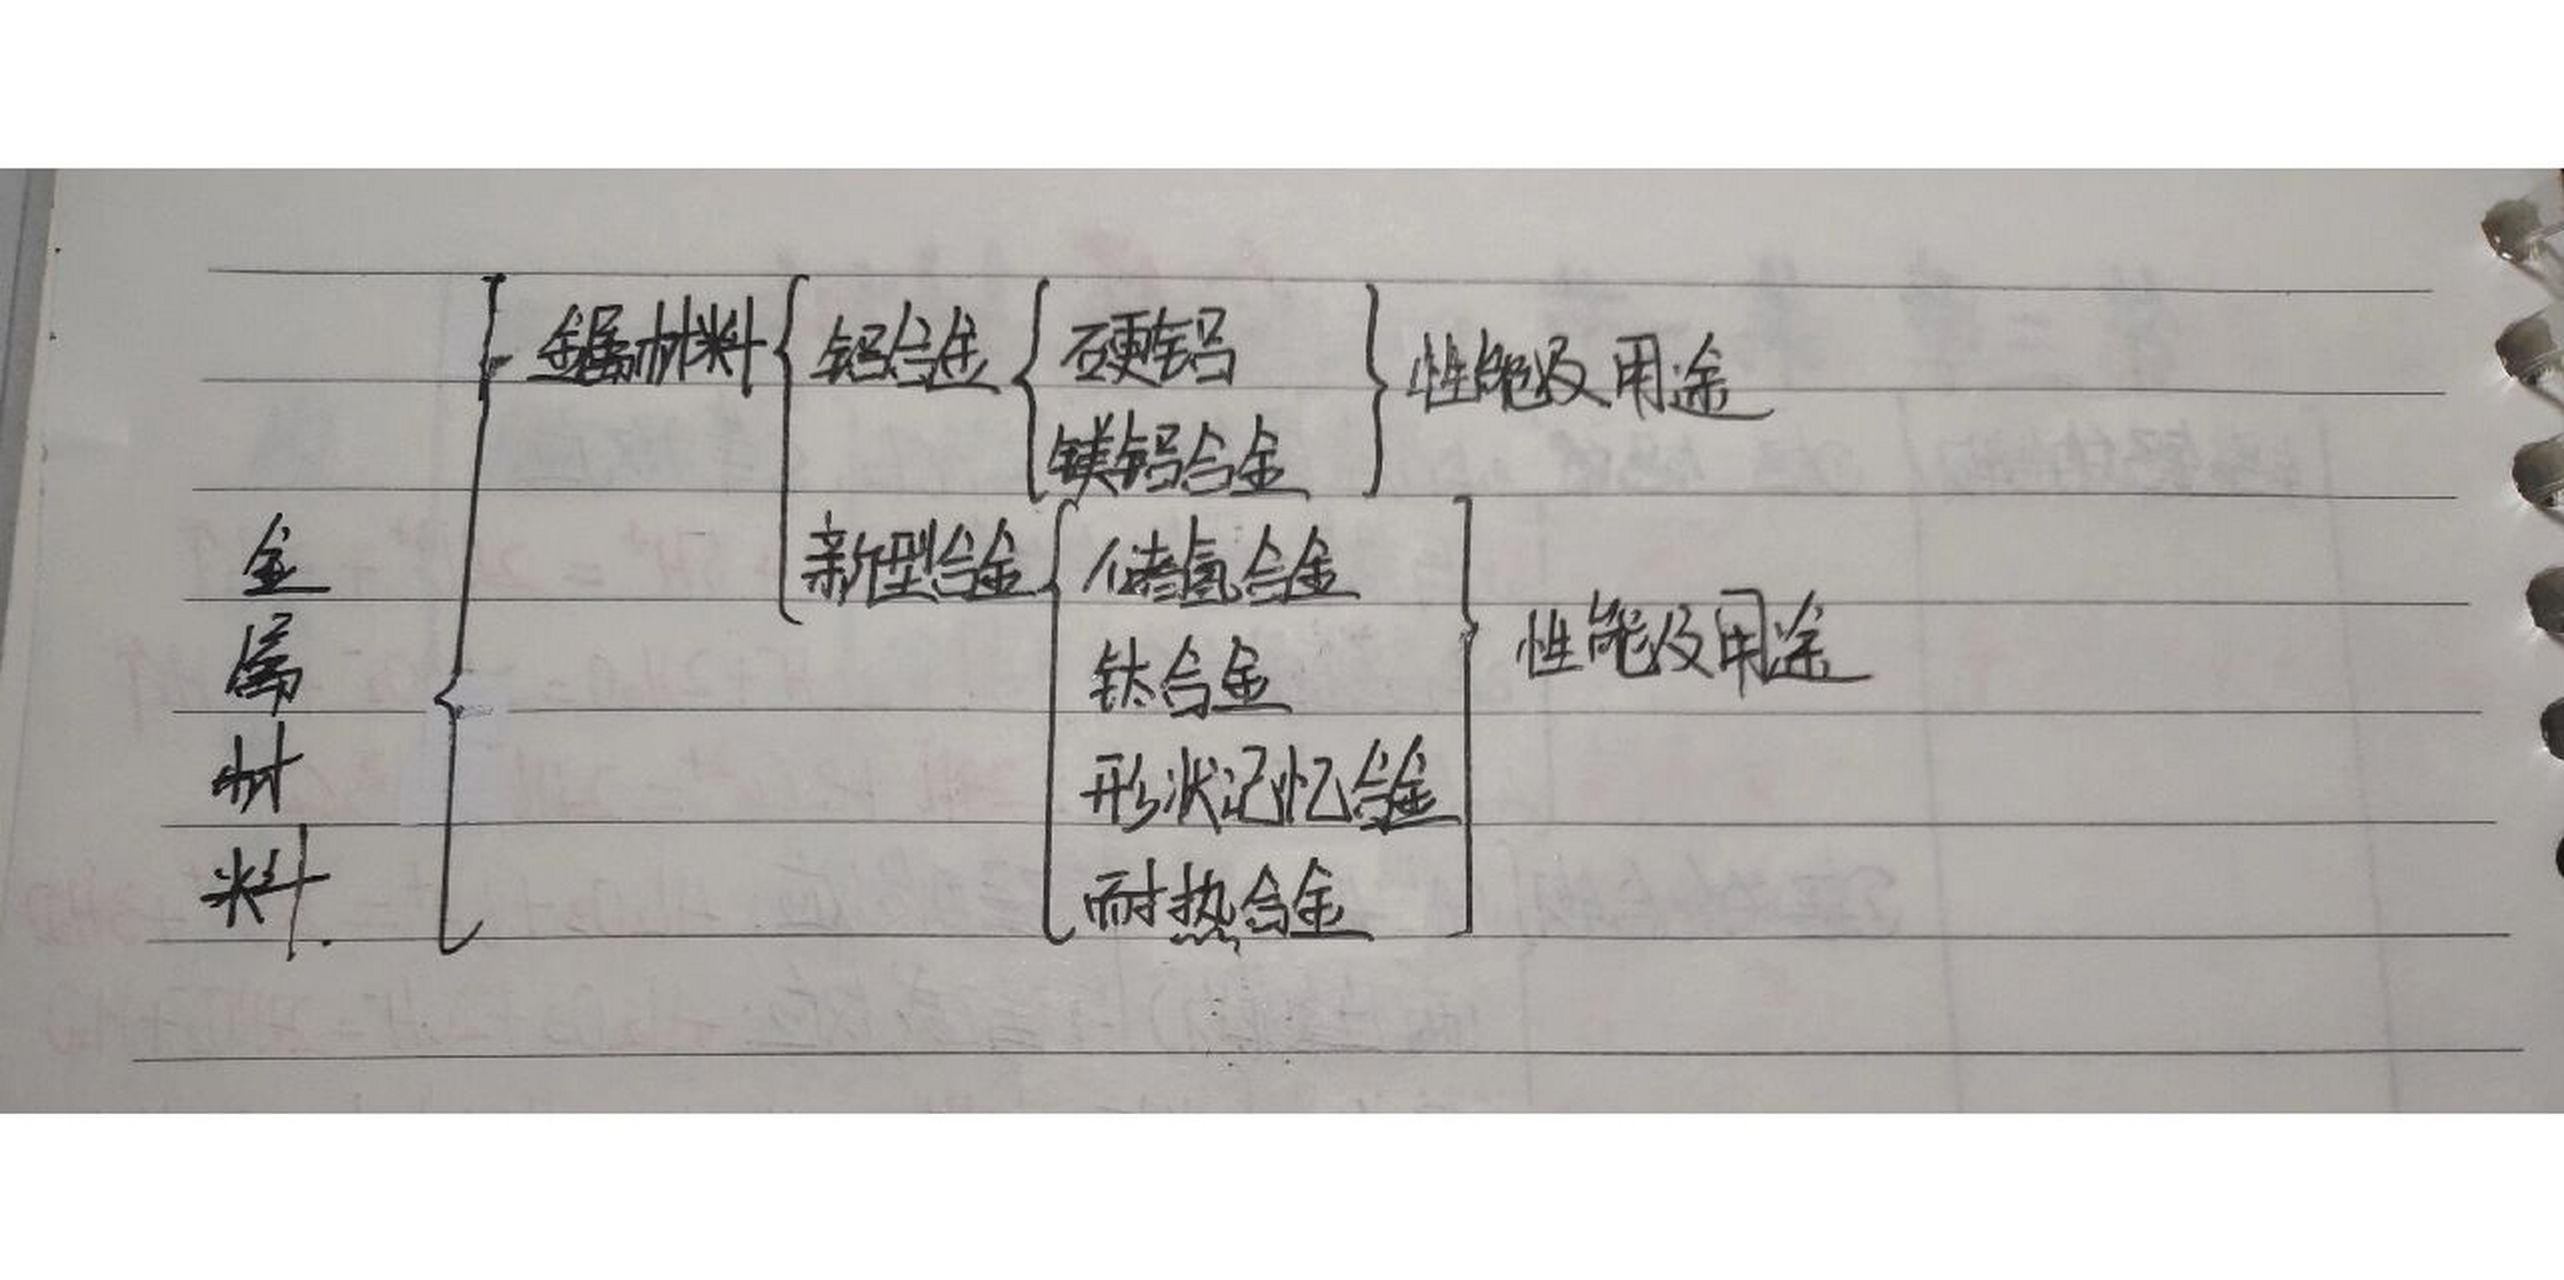 金属材料
金属材料
铝合金
硬铝
镁铝合金
性能及用途
新型合金
储氢合金
钛合金
形状记忆合金
耐热合金
性能及用途